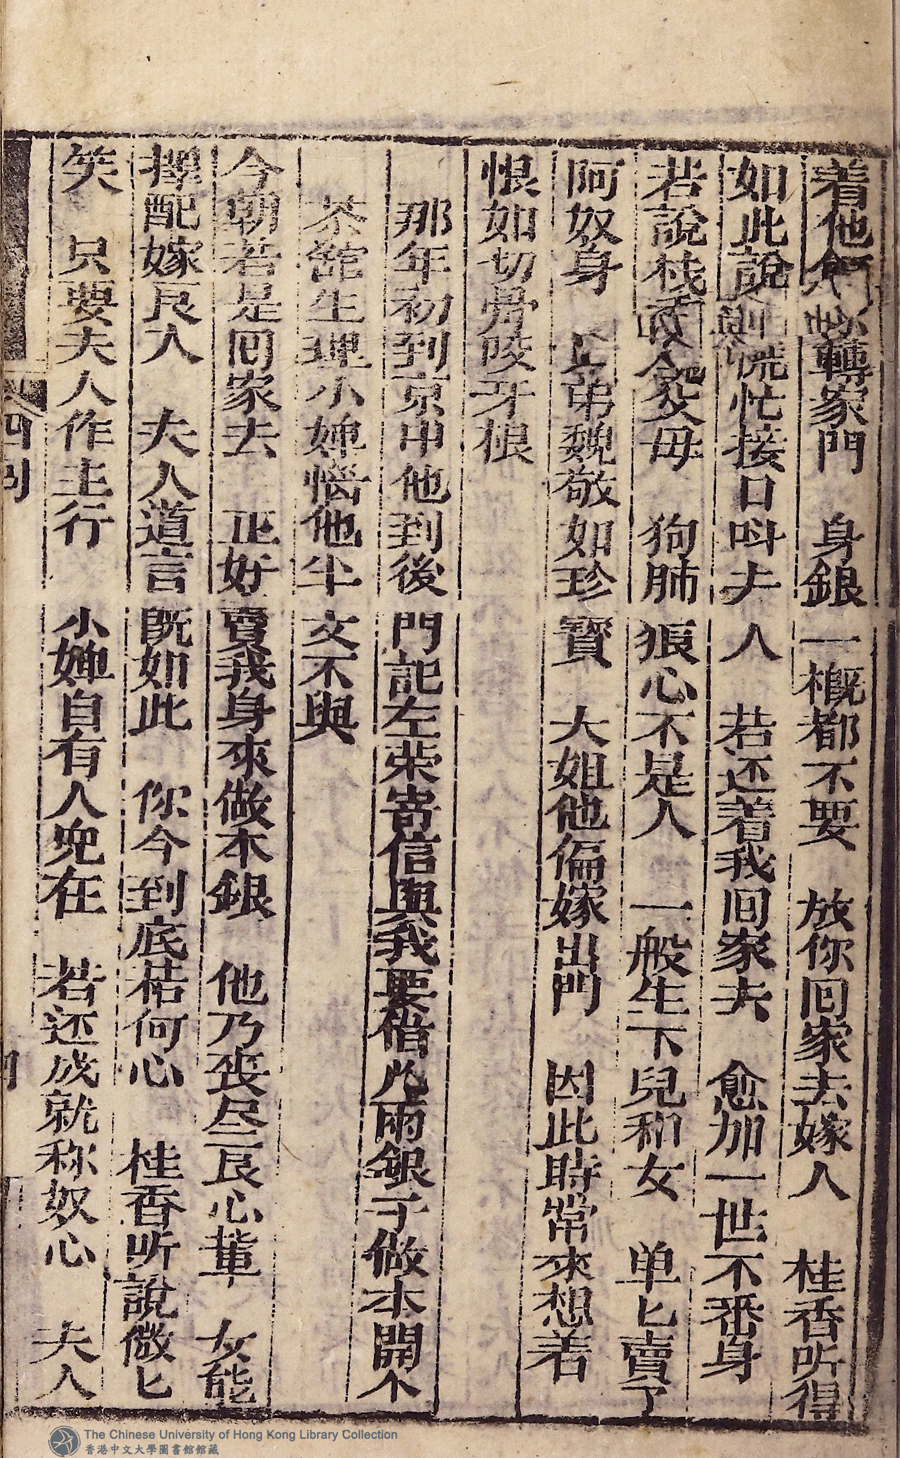 着他轉家門　身銀一概都不要　放你囘家去嫁人　桂香听得
如此說　則慌忙接口呌夫人　若还着我囘家去　愈加一世不番身
若說桂香父母　狗肺狠心不是人　一般生下兒和女　单匕賣了
阿奴身　弟魏敬如珍寶　大姐他偏嫁出門　因此時常來想着
恨如切骨咬牙根
那年初到京中他到後門記左荣寄信與我要借几兩銀子做本開个
茶舘生理小婢惱他半文不與
今朝若是囘家去　正好賣我身來做本銀　他乃丧尽良心輩　女能
擇配嫁良人　夫人道言既如此　你今到底桔何心　桂香听說微匕
笑　只要夫人作主行　小婢自有人兜在　若还成就称奴心　夫人
四
The Chinese University of Hong Kong Library Collection
香港中文大學圖書館館藏